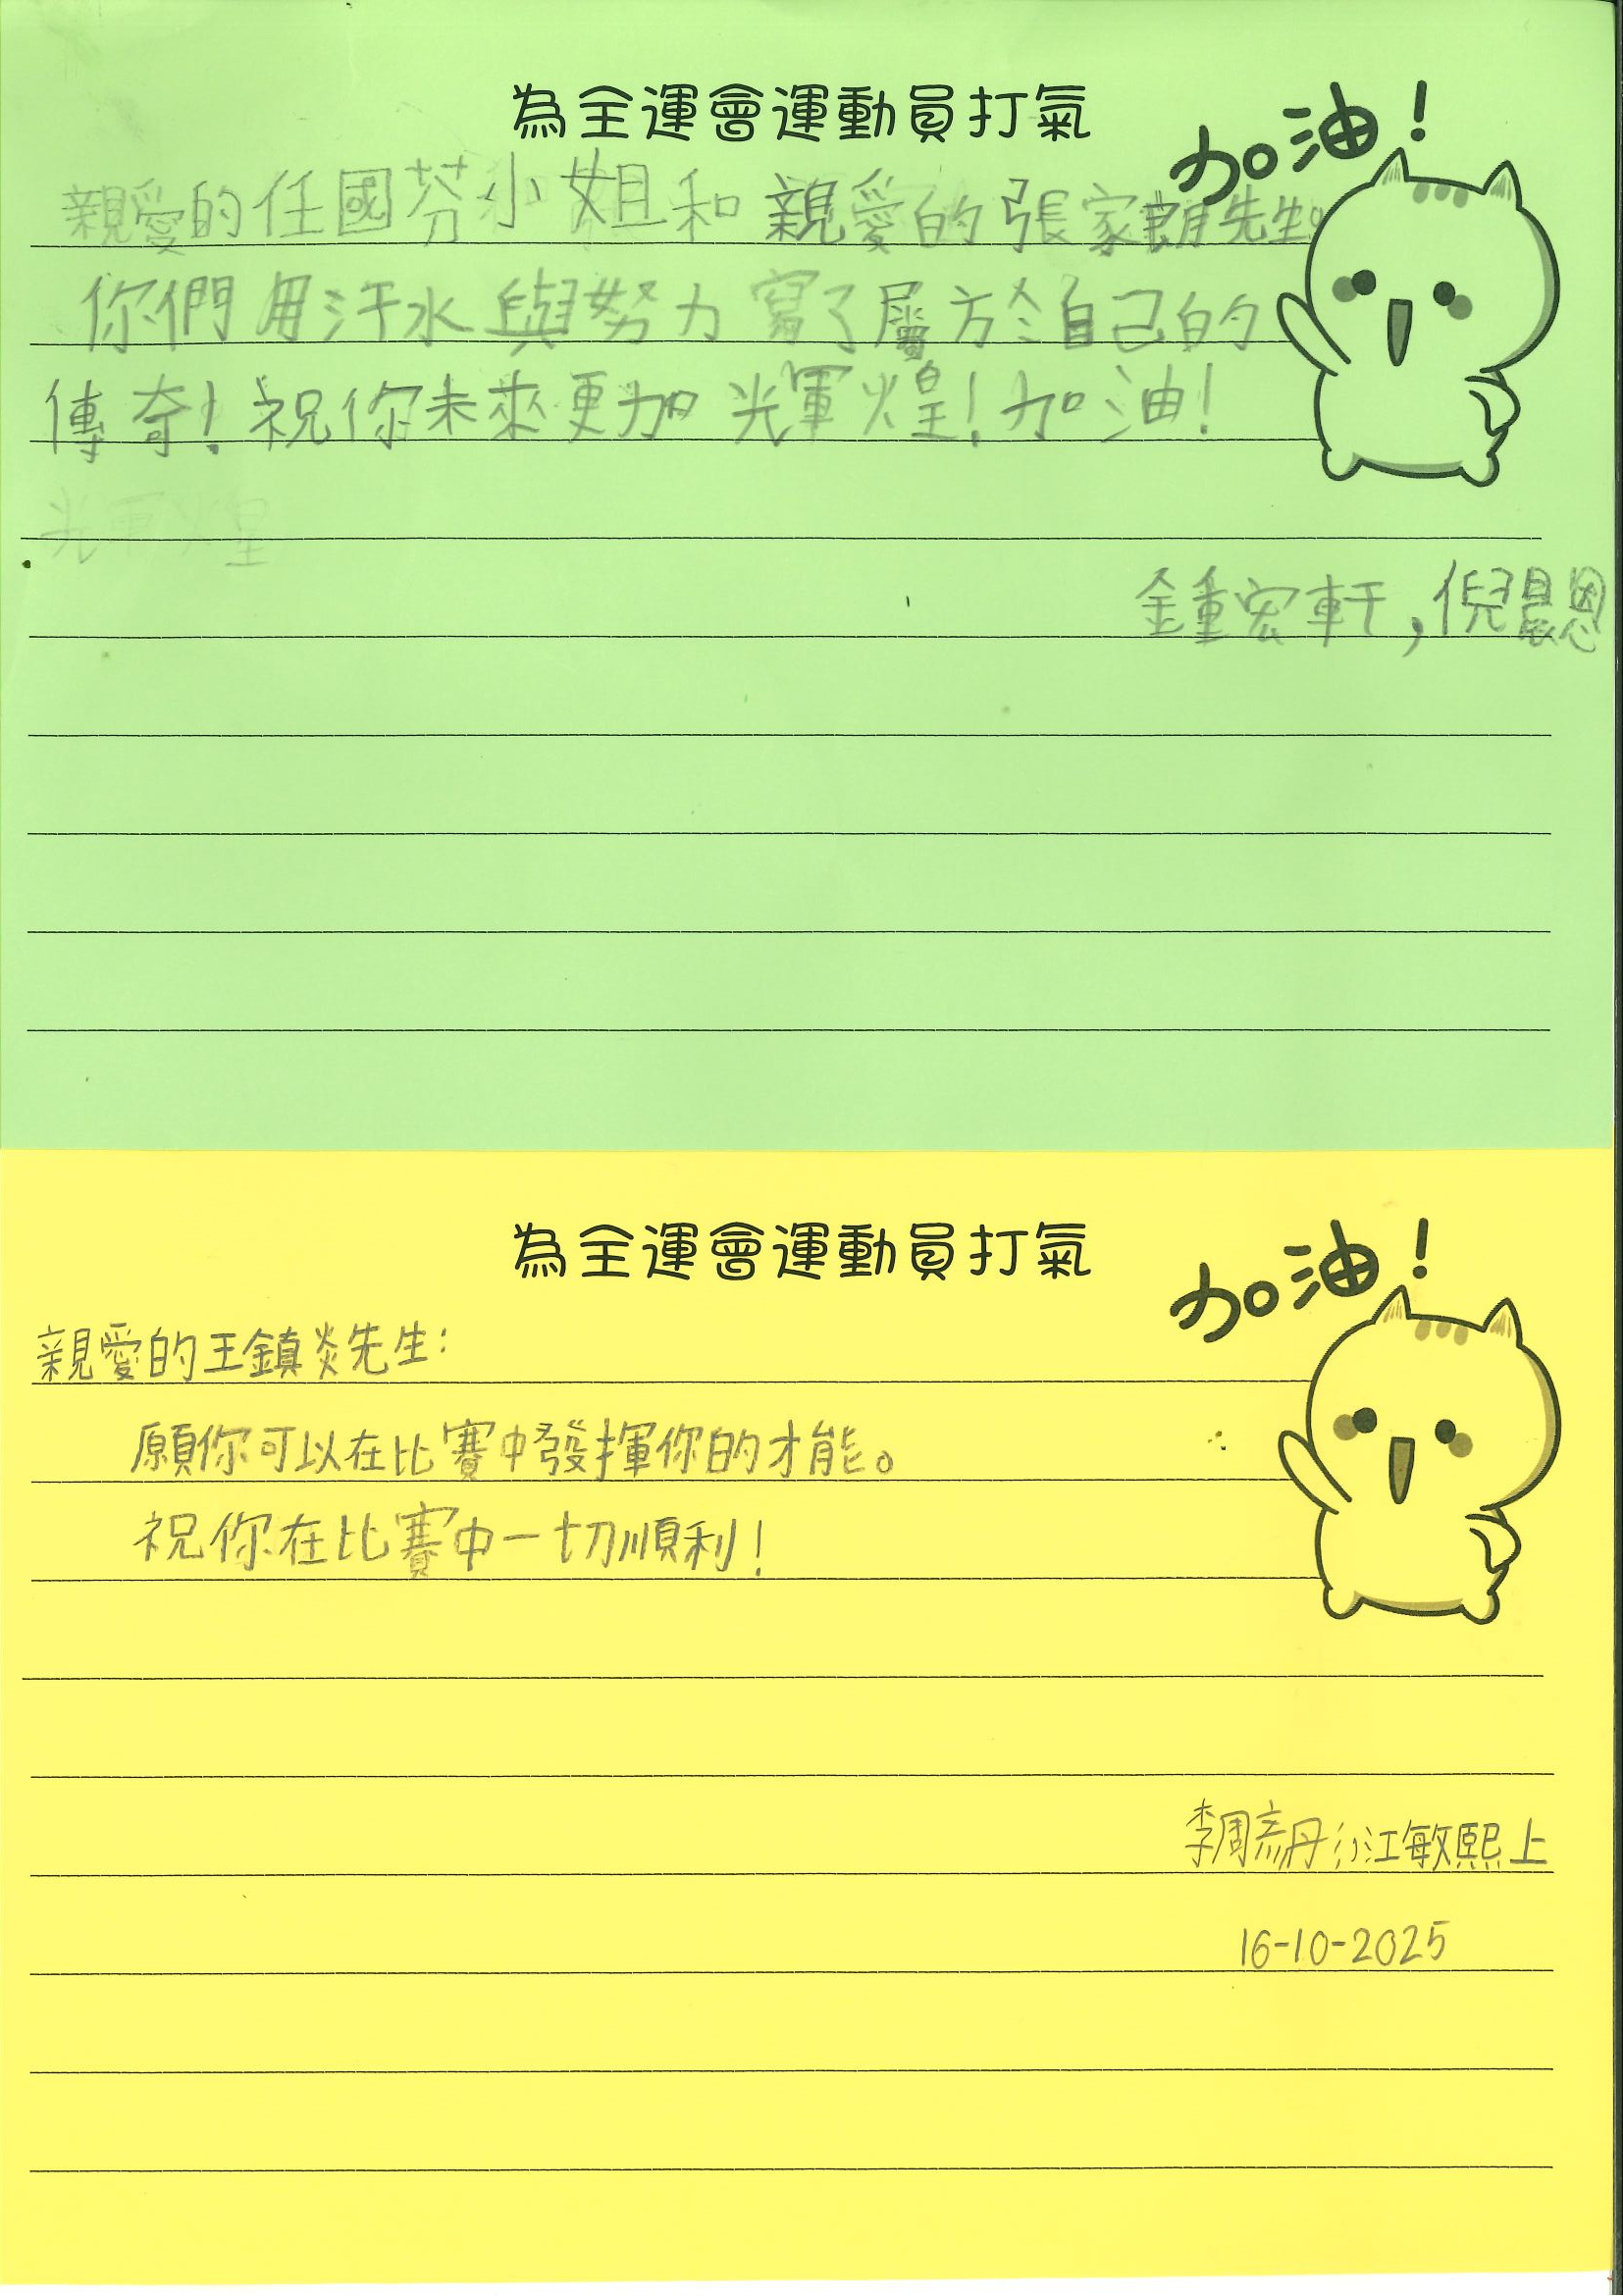 為全運會運動員打氣
加油！
親愛的任國芬小姐和親愛的張家朗先生。
你們用汗水與努力寫了屬於自己的
傳奇！祝你未來更加光輝煌！加油！
光輝煌
鍾宏軒，倪晨恩
為全運會運動員打氣
加油！
親愛的王鎮炎先生：
願你可以在比賽中發揮你的才能。
祝你在比賽中一切順利！
李周 江敏熙上
16-10-2025